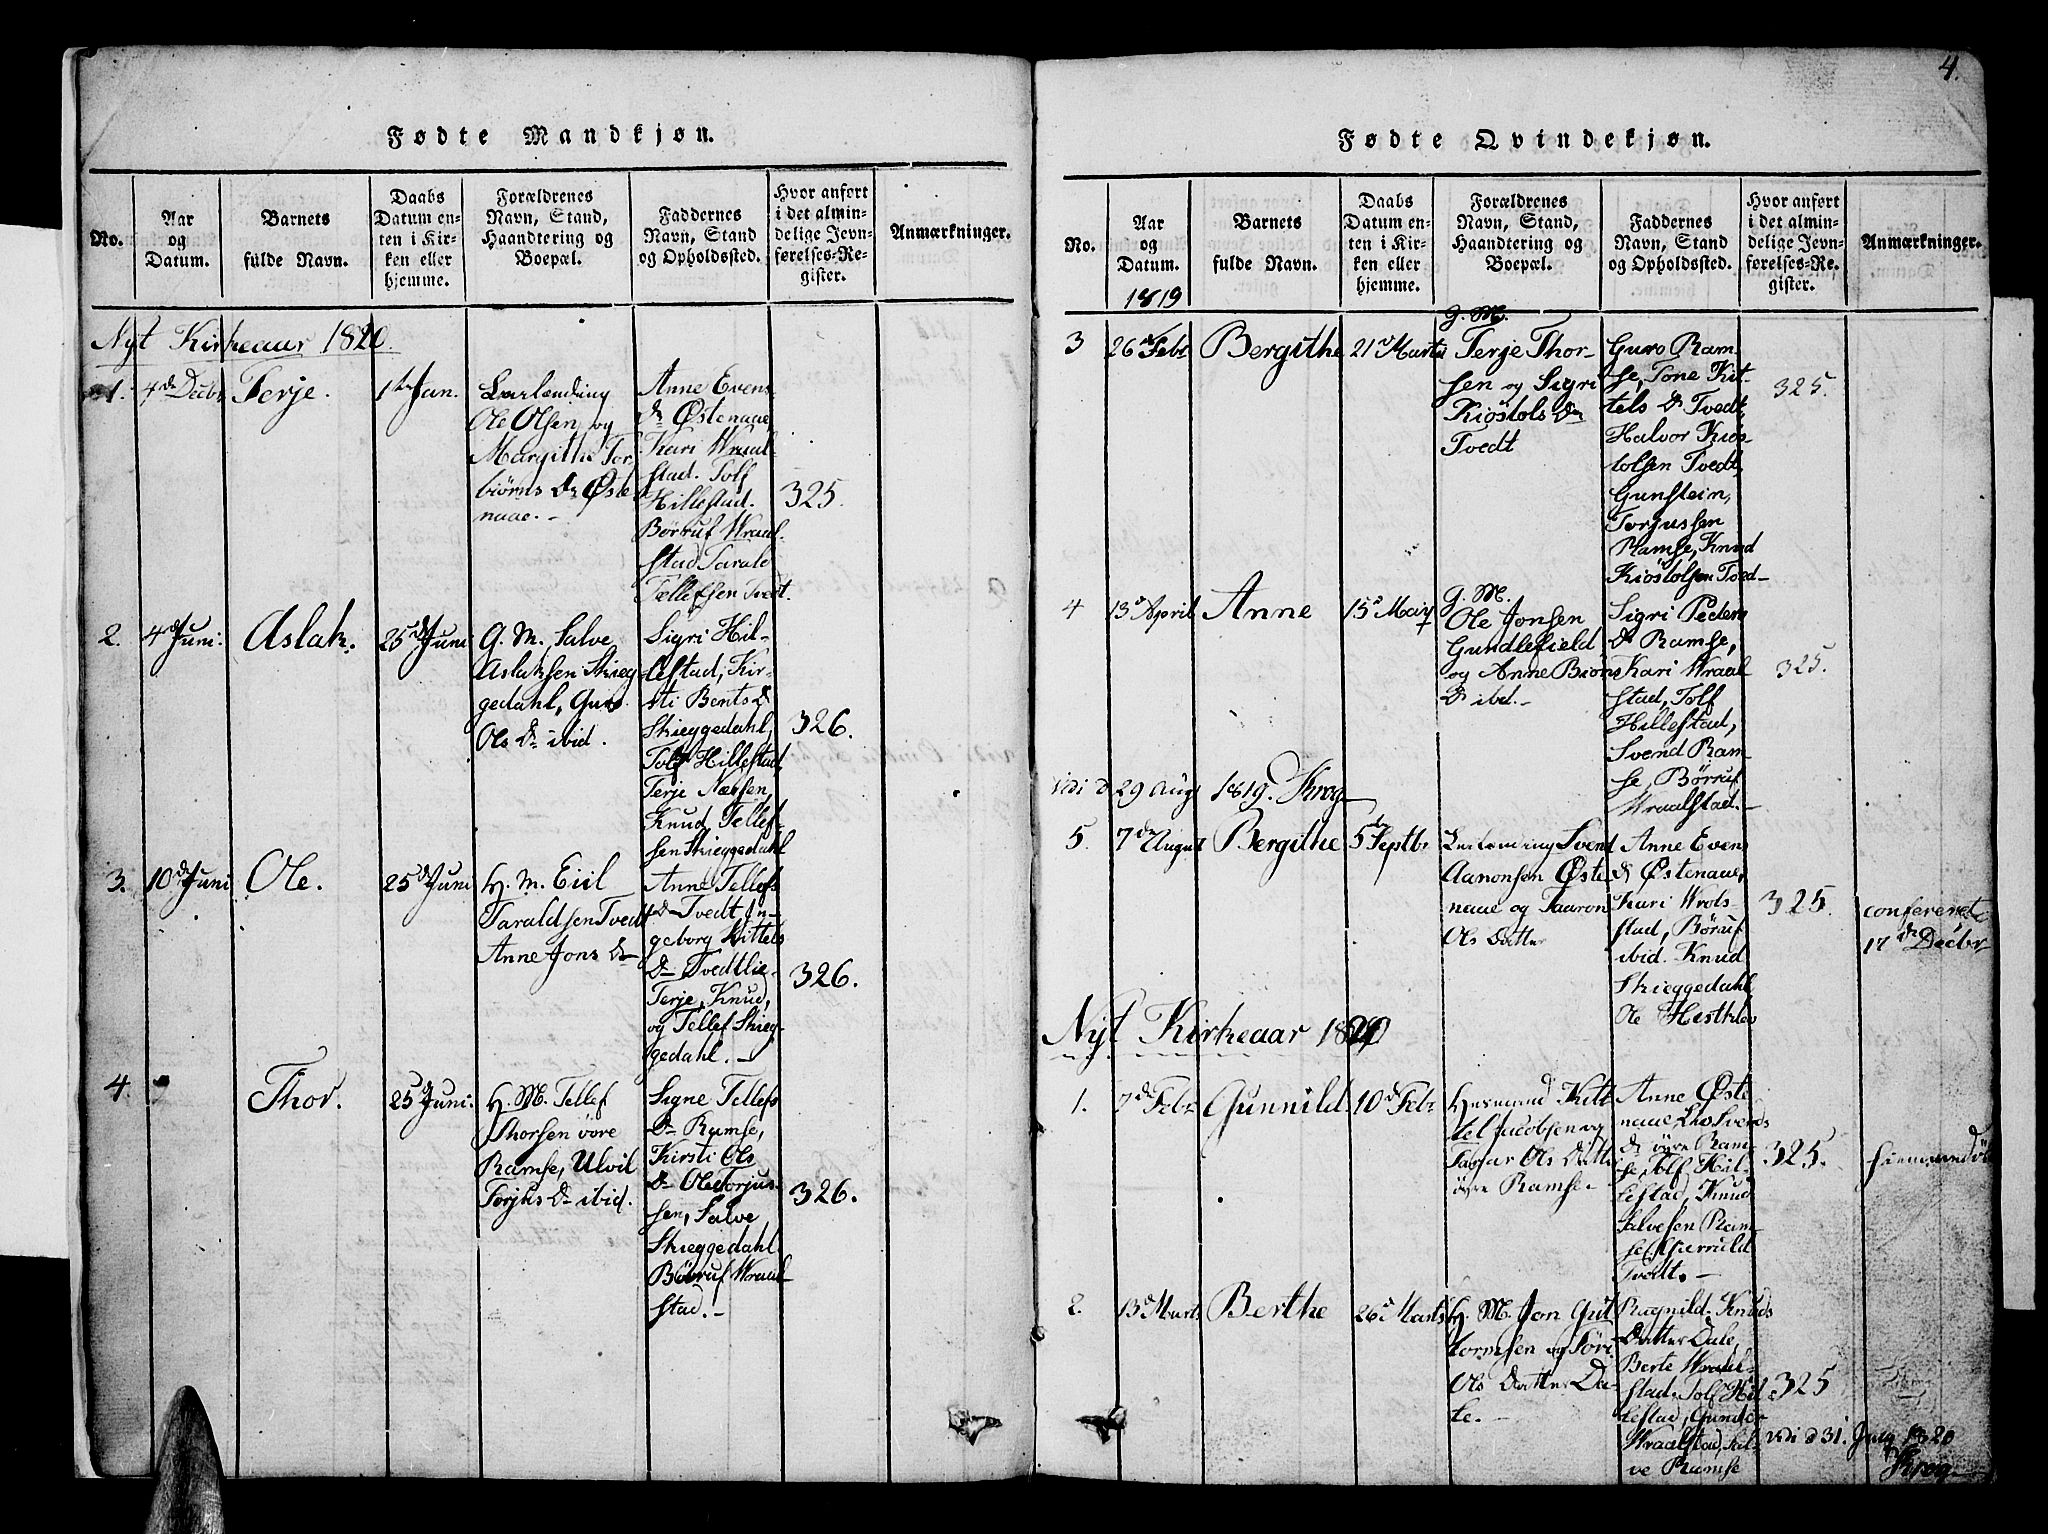 4.
Fødte Mandkjøn.
No.
Aar
og
Datum.
Barnets
fulde Navn.
Daabs
Datum en-
ten i Kir-
ken eller
hjemme.
Forældrenes
Navn, Stand,
Haandtering og
Boepæl.
Faddernes
Navn, Stand
og Opholdssted.
Hvor anført
i det almin-
delige Jevn-
førelses-Re-
gister.
Anmærkninger.
Nyt Kirkeaar 1820.
1.
4de Decbr
Terje.
1ste Jan.
Leilending
Ole Olsen og
Margithe Tor
biørns Dr Øste
naae.-
Anne Evens
Dr Østenaae
Kari Wraal-
stad. Tolf
Hillestad.
Børruf Wraal-
stad Tarald
Tellefsen Tvedt.
325.
2.
4de Juni:
Aslak.
25de Juni
G. M. Salve
Aslaksen Skieg
gedahl, Guro
Ols Dr ibid.
Sigri Hil-
lestad, Kir-
sti Bents D
Skieggedahl,
Tolf Hillestad,
Terje Næssen,
Knud Tellef-
sen Skieggedahl
326.
3.
10de Juni
Ole.
25de Juni
H. M. Eiil
Taraldsen Tvedt
Anne Jons Dr
Anne Tellefs
Dr Tvedt, In-
geborg Kittels
Dr Tvedtlie-
Terje, Knud,
og Tellef Skieg-
gedahl.-
326.
4.
Thor.
25 Juni:
H. M. Tellef
Thorsen øvre
Ramse, Ulvil
Torjus Dr ibid.
Signe Tellefs
Dr Ramse,
Kirsti Ols
Dr Ole Torjus-
sen, Salve
Skieggedahl
Børruf Wraal-
stad.-
326.
Fødte Qvindekjøn.
No.
Aar
og
Datum.
1819
Barnets
fulde Navn.
Daabs
Datum en-
ten i Kir-
ken eller
hjemme.
Forældrenes
Navn, Stand,
Haandtering og
Boepæl.
Faddernes
Navn, Stand
og Opholdssted.
Hvor anført
i det almin-
delige Jevn-
førelses-Re-
gister.
Anmærkninger.
3
26 Febr
Bergithe
21 Marts
G. M.
Terje Thor-
sen og Sigri
Kiøstols Dr
Tvedt
Guro Ram-
se, Tone Kit-
tels Dr Tvedt,
Halvor Kiøs-
tolsen Tvedt,
Gunstein,
Torjussen
Ramse, Knud
Kiøstolsen Tved-
325.
4
13d April
Anne
15d Maiy
G. M.
Ole Jonsen
Gundlefield,
og Anne Biøns
D ibid.-
Sigri Peders
Dr Ramse,
Kari Wraal
stad, Tolf
Hillestad,
Svend Ram-
se, Børruf
Wraalstad.-
325.
vidi d 29 Aug 1819. Krog
5.
7de August
Bergithe
5de Septbr
Leilending Svend
Aanonsen Øste
naae og Taaron
Ols Datter
Anne Evens
D Østenaae,
Kari Wrols-
stad, Børuf
ibid. Knud
Skieggedahl,
Ole Hesthlev
325.
conferert
17de Decbr
Nyt Kirkeaar 1820
1.
7de Febr
Gunnild.
10d Febr
Huusmand Kit
tel Jacobsen og
Ols Datter
øvre Ramse-
Anne Øste
naae, Svends
D øvre Ram-
se, Tolf Hil-
lestad, Knud
Salvesen Ram-
se,
Tvedt.-
325.
hiemmedøbt
2.
13d Marts
Berthe
26d Marts
H. M. Jon Gut
tormsen og Tøri
Ols Datter Da-
le.-
Ragnild Knuds
Datter Dale,
Berte Wraal-
stad. Tolf Hil
lestad, Gundor
Wraalstad, Sal-
ve Ramse
325
vidi d 31. 1820
Krog